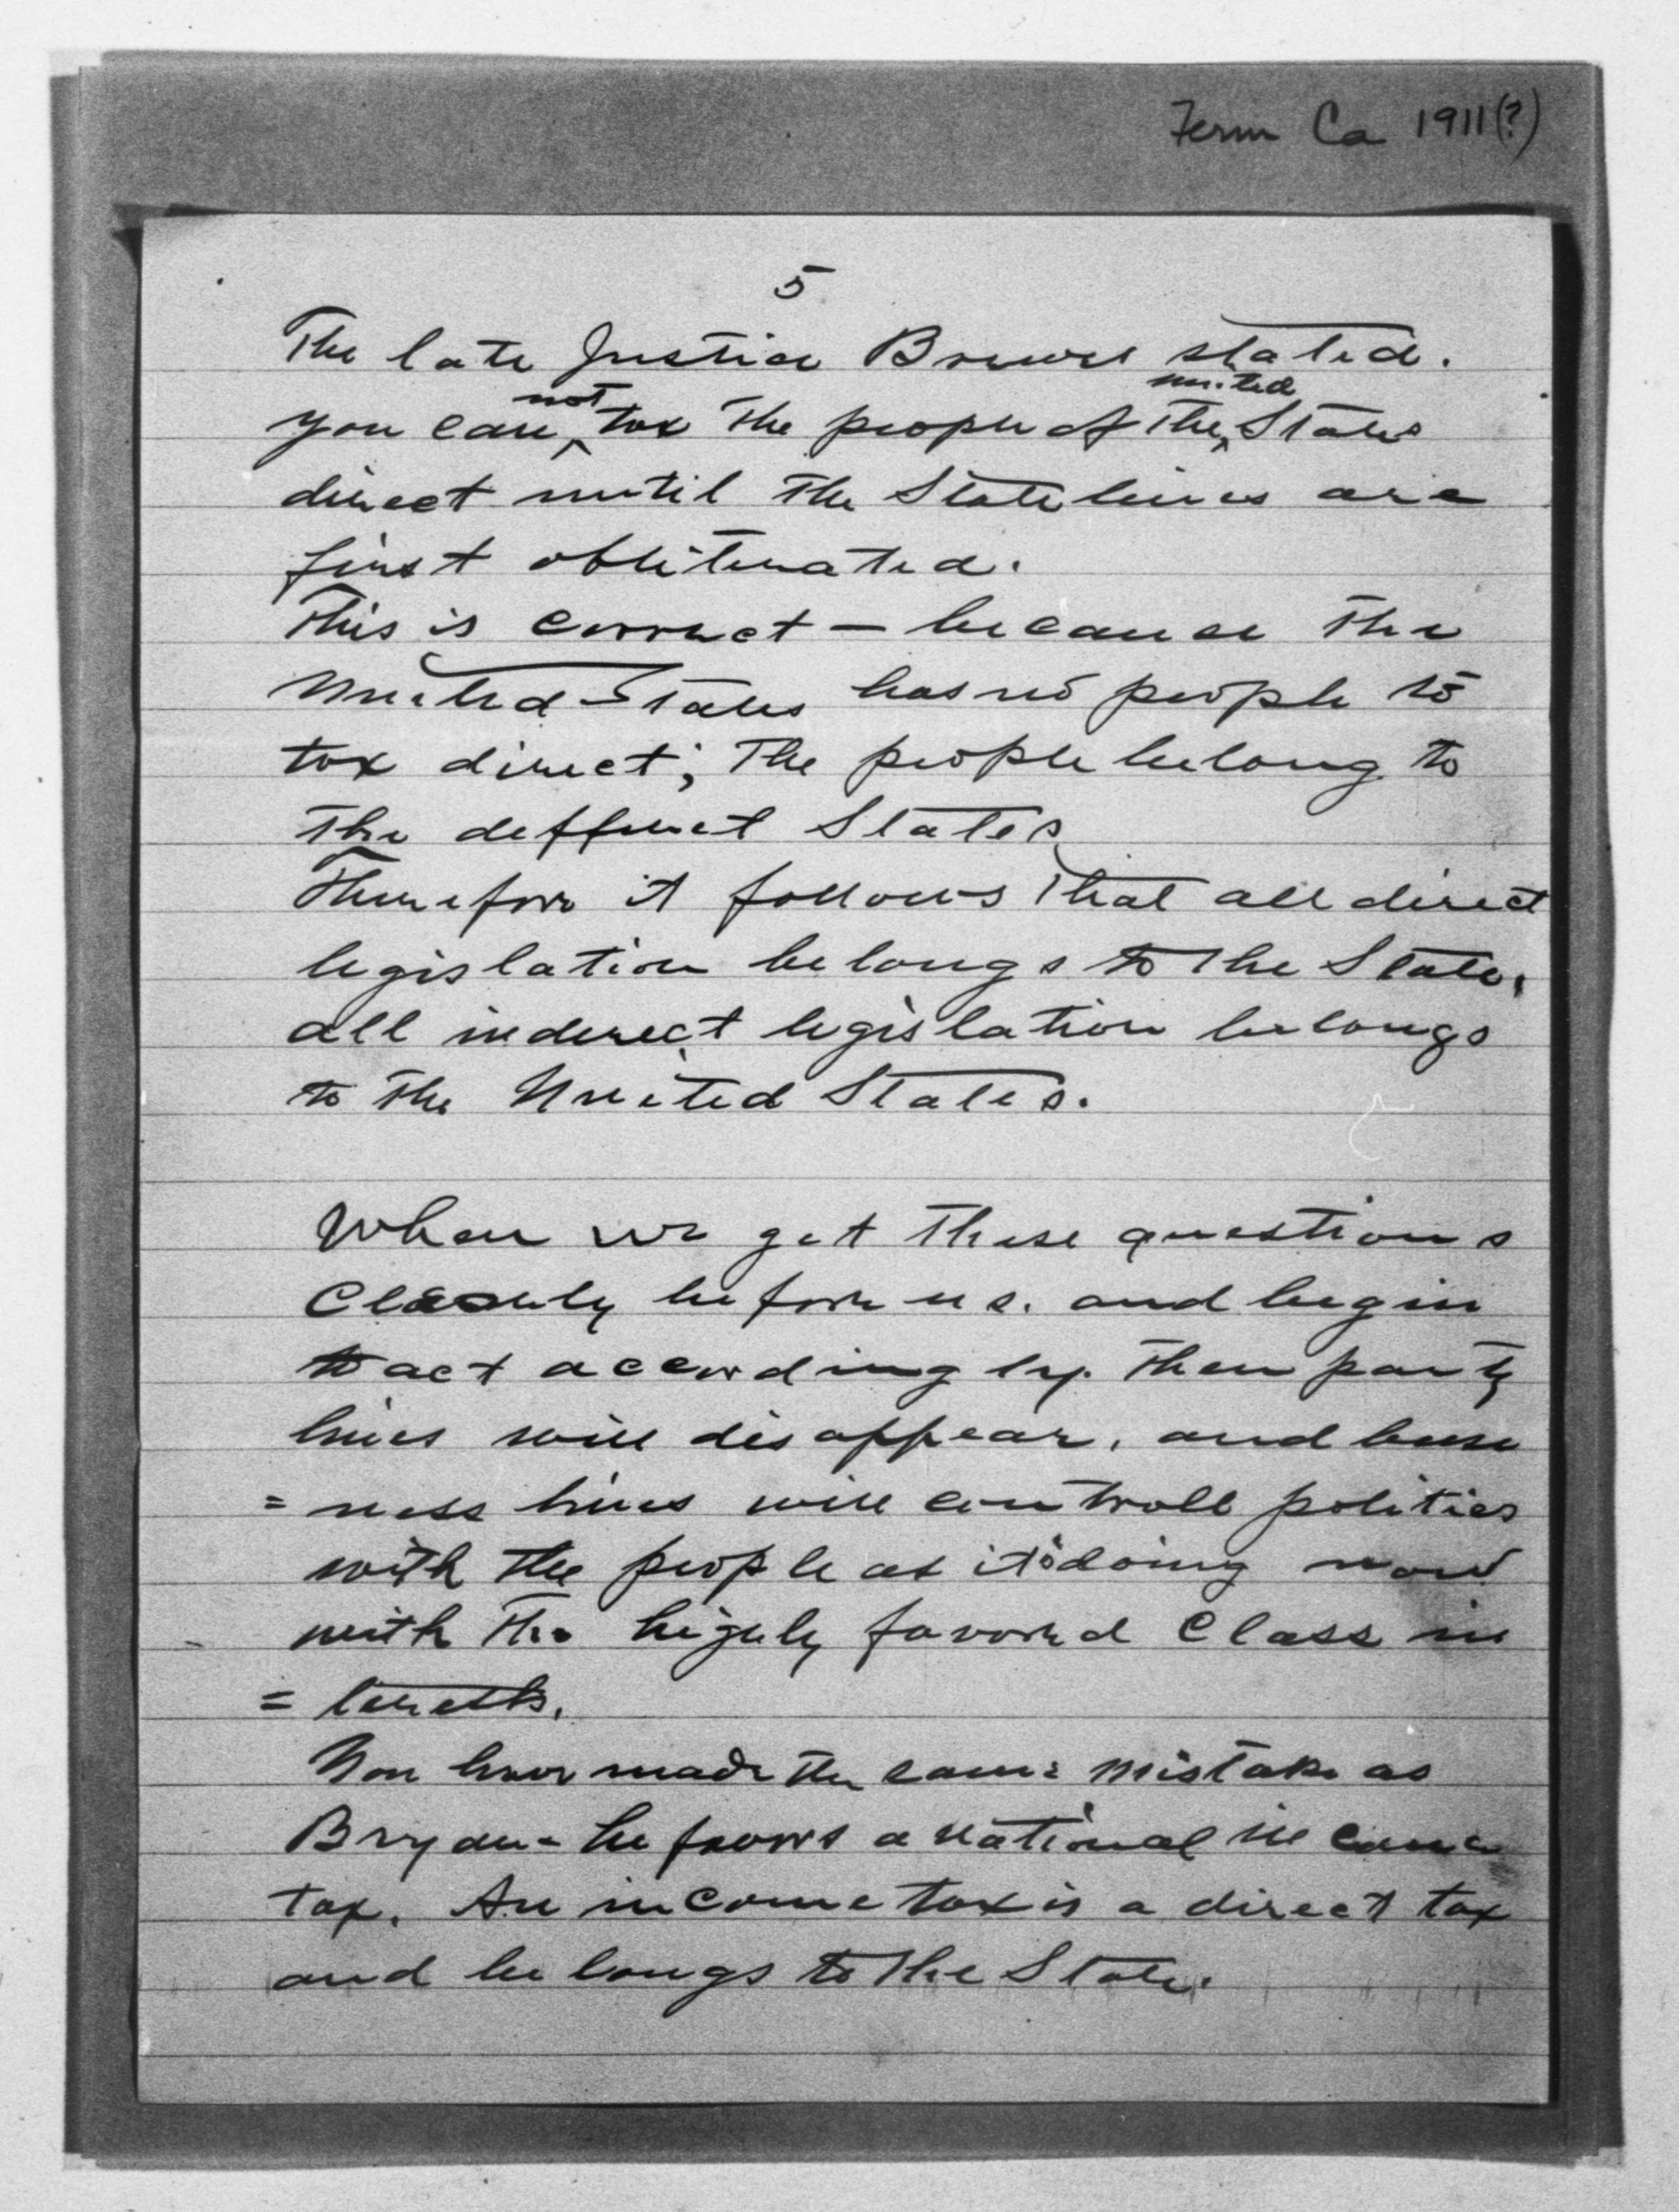 Term Ca 1911(?)
5
The late Justice Brewer stated.
not united
you can ^ tax the people of the ^ States
direct until the State lines are
first obliterated.
This is correct — because the
United States has no people to
tax direct; The people belong to
the different States
Therefore it follows that all direct
legislation belongs to the State,
all indirect legislation belongs
to the United States.
When we get these questions
Clearly before us. and begin
to act accordingly. then party
lines will disappear, and busi
= ness lines will controll politics
with the people as it is doing now
with the highly favored Class in
= terests.
You have made the same mistake as
Bryan - he favors a national income
tax. An income tax is a direct tax
and belongs to the State.